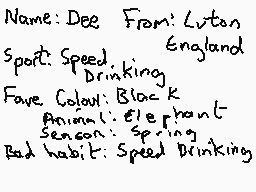 Name: Dee From: Luton
England
Sport: Speed
Drinking
Fave Colour: Black
Animal: Elephant
Season: Spring
Bad habit: Speed Drinking